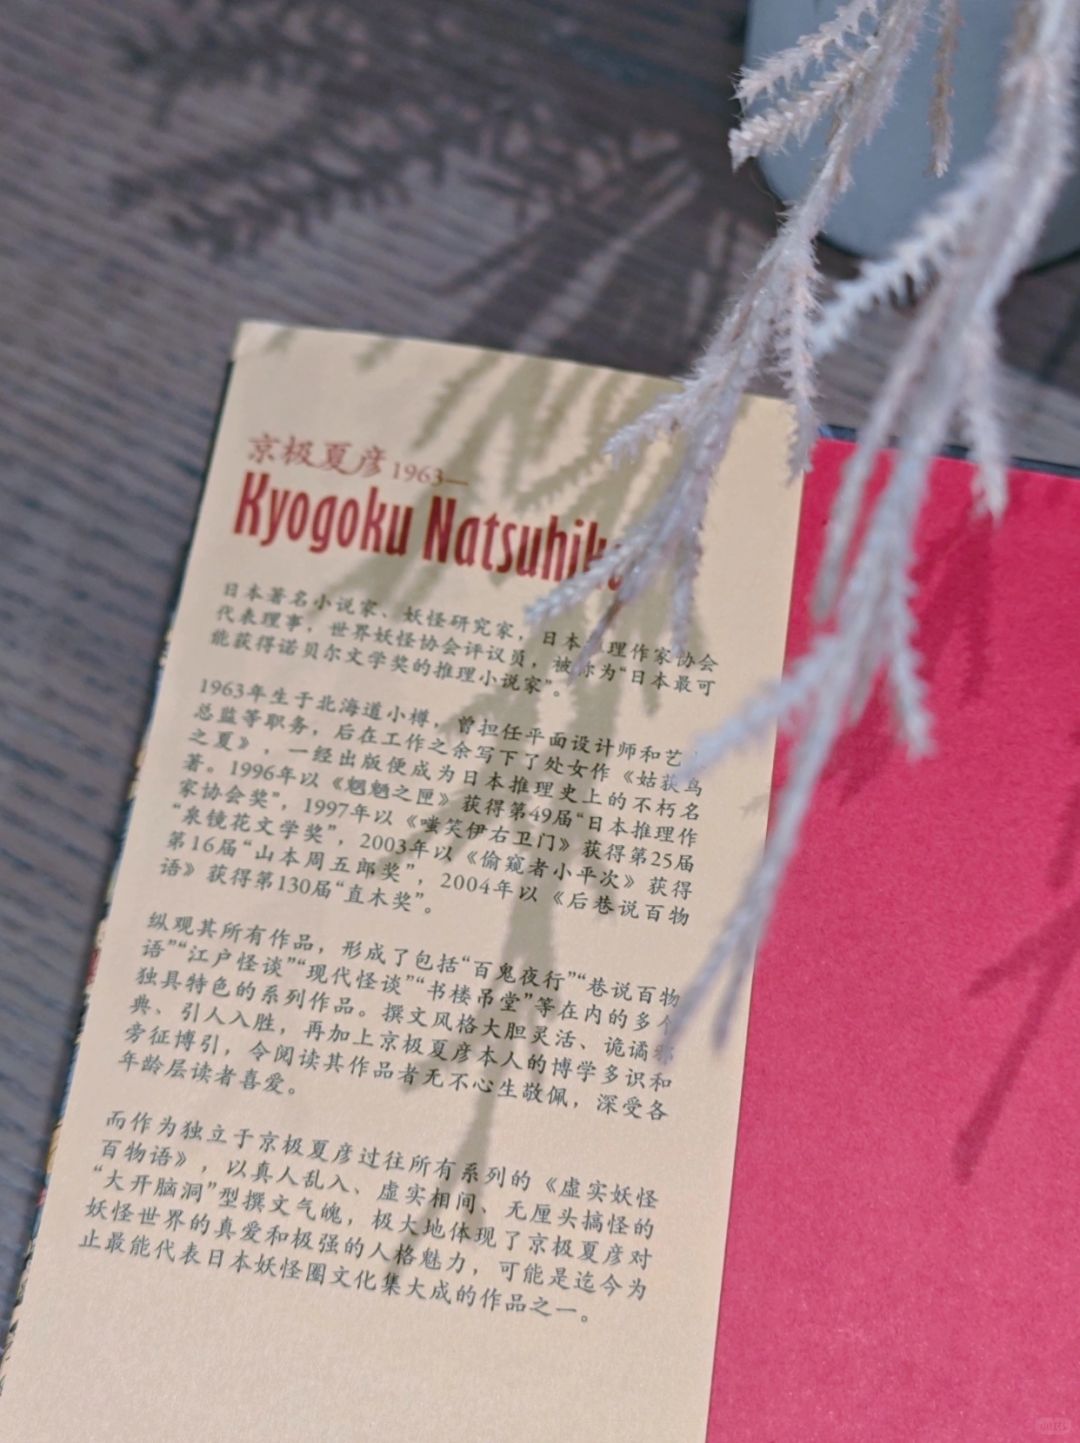 京极夏彦 1963—
Kyogoku Natsuhik
日本著名小说家、妖怪研究家，日本推理作家协会
代表理事，世界妖怪协会评议员，被称为“日本最可
能获得诺贝尔文学奖的推理小说家”。
1963年生于北海道小樽，曾担任平面设计师和艺
总监等职务，后在工作之余写下了处女作《姑获鸟
之夏》，一经出版便成为日本推理史上的不朽名
著。1996年以《魍魉之匣》获得第49届“日本推理作
家协会奖”，1997年以《嗤笑伊右卫门》获得第25届
“泉镜花文学奖”，2003年以《偷窥者小平次》获得
第16届“山本周五郎奖”，2004年以《后巷说百物
语》获得第130届“直木奖”。
纵观其所有作品，形成了包括“百鬼夜行”“巷说百物
语”“江户怪谈”“现代怪谈”“书楼吊堂”等在内的多个
独具特色的系列作品。撰文风格大胆灵活、诡谲邪
典、引人入胜，再加上京极夏彦本人的博学多识和
旁征博引，令阅读其作品者无不心生敬佩，深受各
年龄层读者喜爱。
而作为独立于京极夏彦过往所有系列的《虚实妖怪
百物语》，以真人乱入、虚实相间、无厘头搞怪的
“大开脑洞”型撰文气魄，极大地体现了京极夏彦对
妖怪世界的真爱和极强的人格魅力，可能是迄今为
止最能代表日本妖怪圈文化集大成的作品之一。